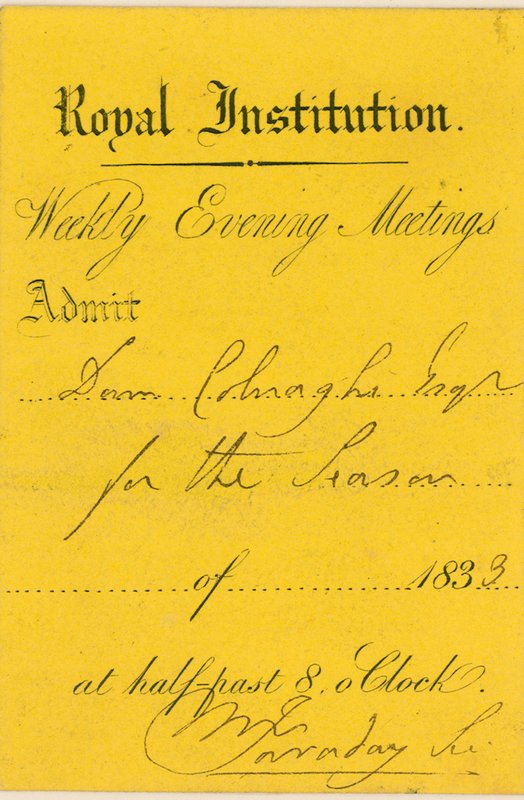 Royal Institution.
Weekly Evening Meetings
Admit
Dom Colnaghi Esqr
for the Season
of 1833
at half-past 8, o'Clock.
M Faraday Sec